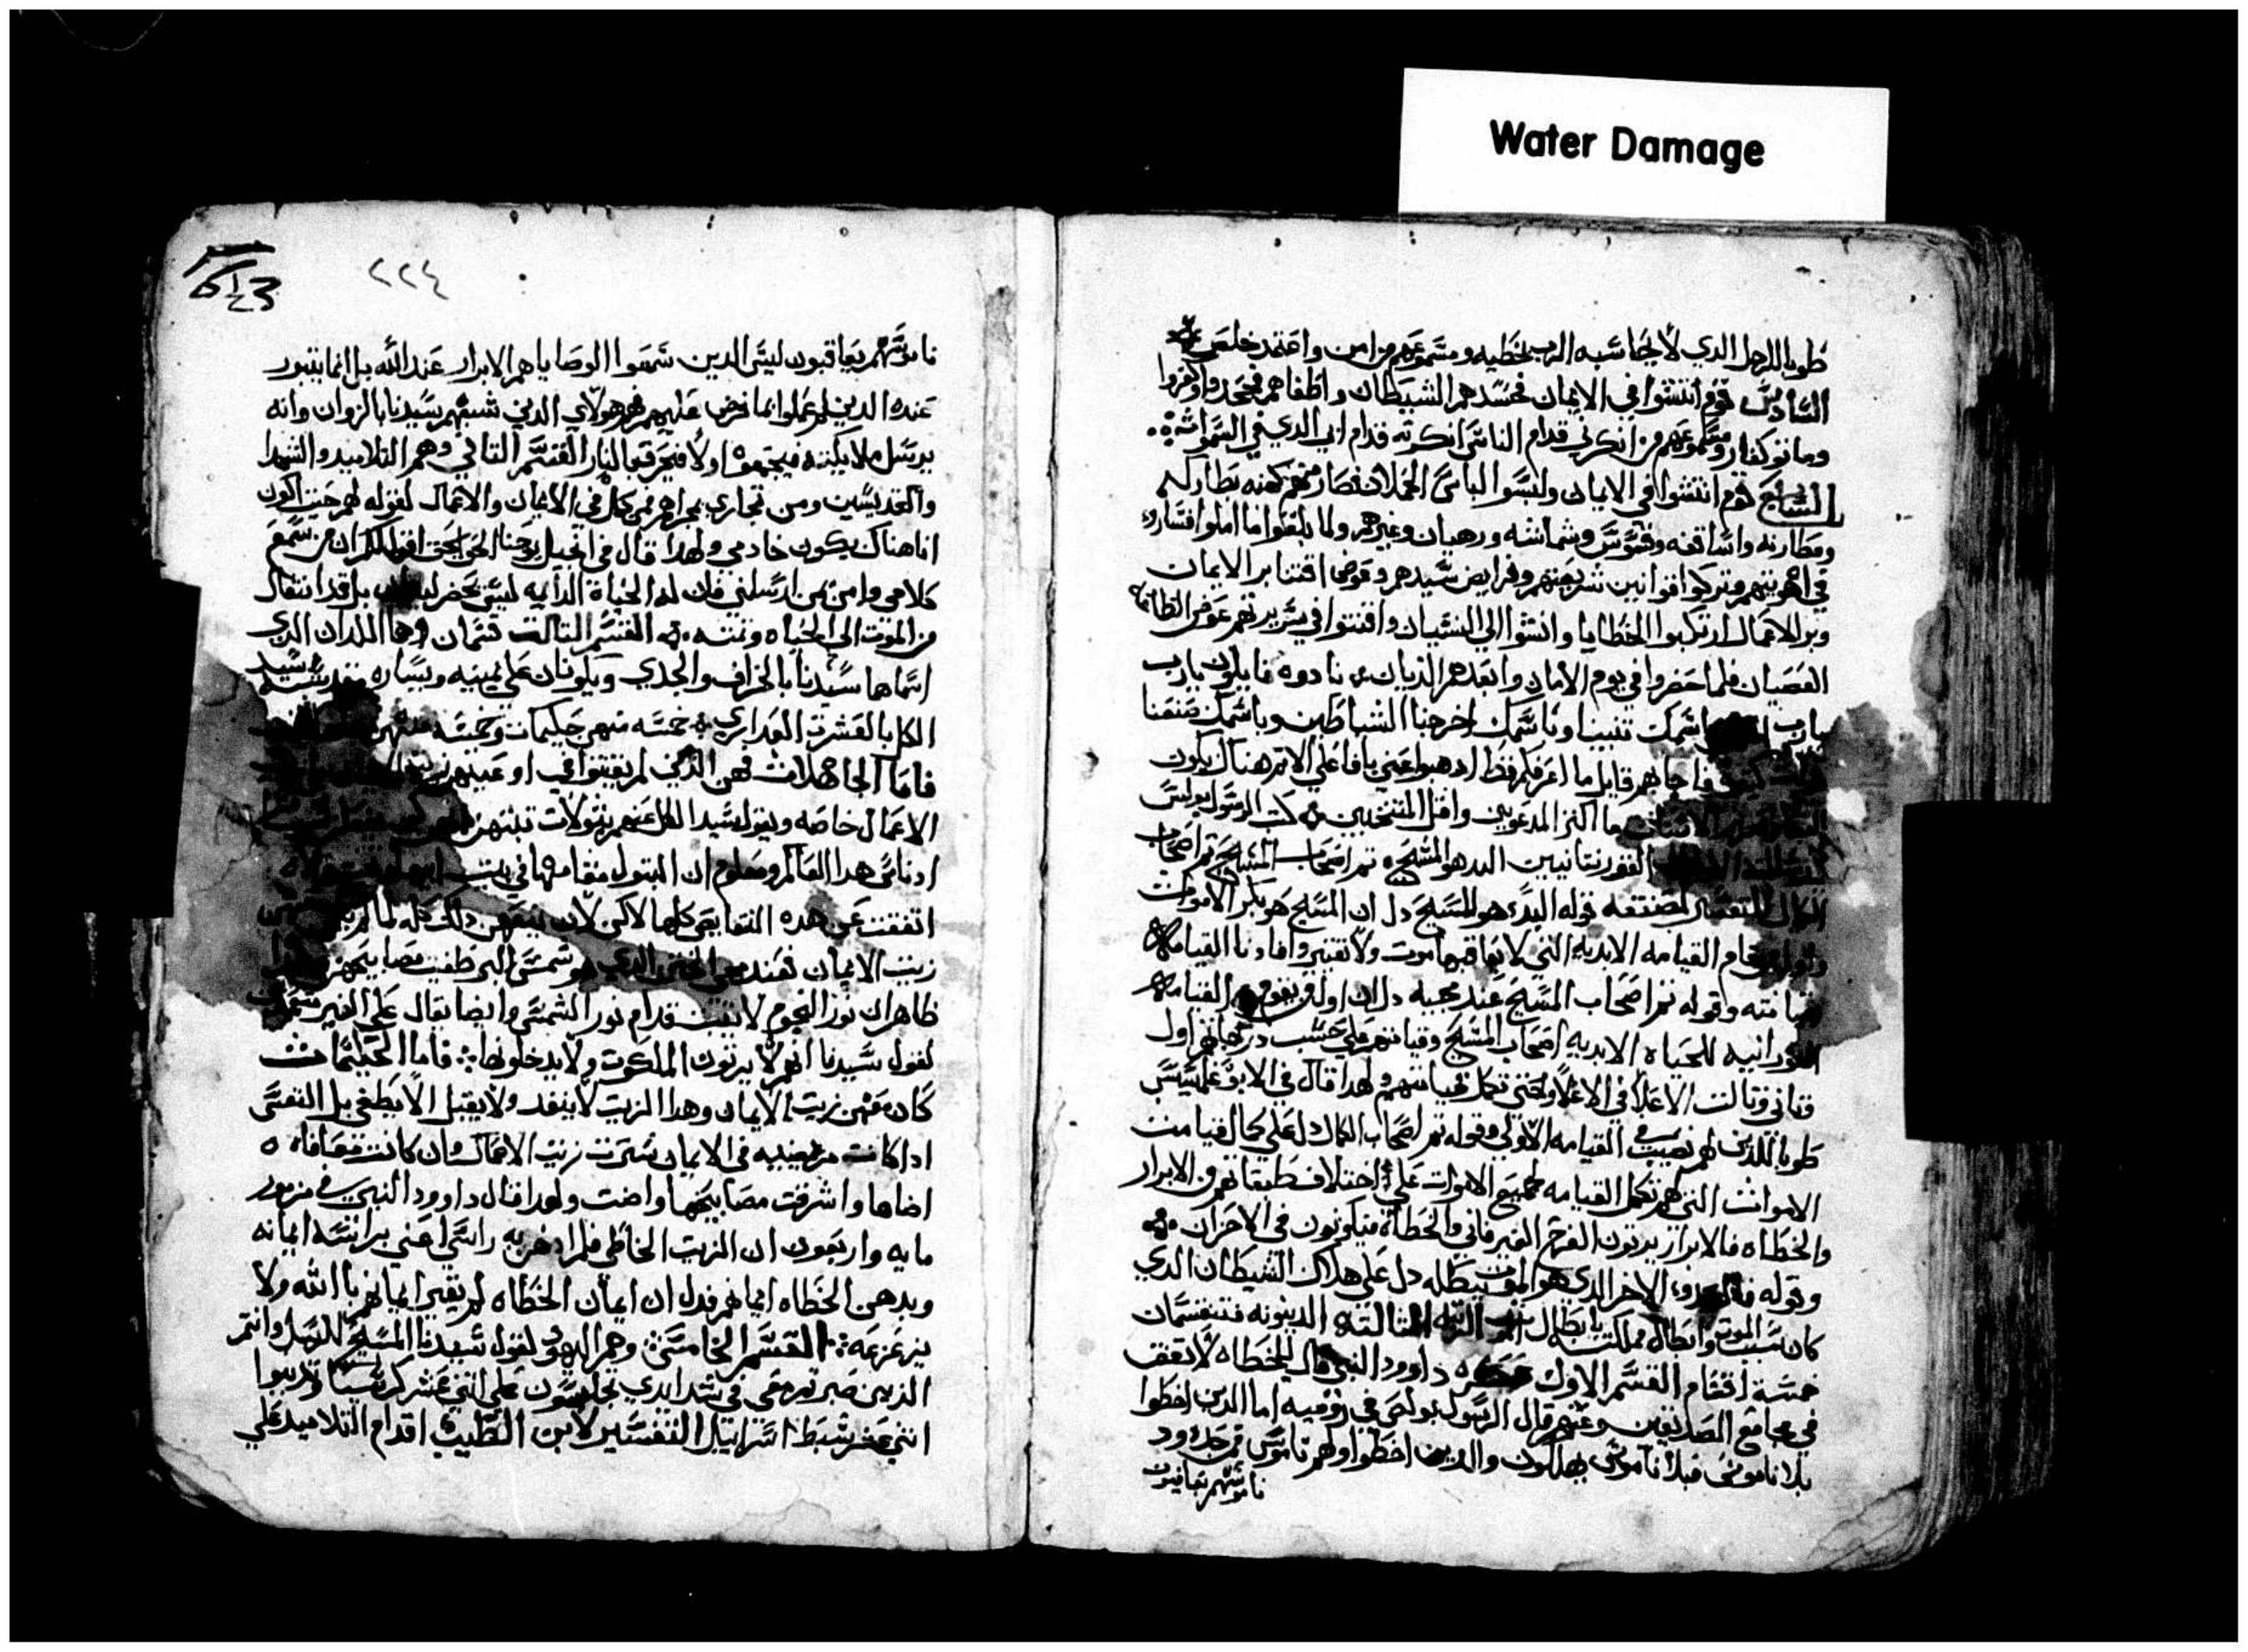 Water Damage
طوبا للرجل الدي لا يحاسبه الرب بخطيه ومسموعهم من امن واعتمد خلص
السادس قوم انتشوا في الايمان فحسدهم الشيطان واطغاهم فجحدوا وكفروا
وماتو كفار ومسموعهم من انكرني قدام الناس انكرته قدام ابي الدي في السموات
السابع قوم انتشوا في الايمان ولبسوا لباس الحملان فصار منهم كهنه بطاركه
ومطارنه واساقفه وقسوس وشمامسه ورهبان وغيرهم ولما بلغوا ما املوا فساروا
في اهويتهم وتركوا قوانين شريعتهم وفرايض سيدهم وعوض اقتنا بر الايمان
وبر الاعمال ارتكبوا الخطايا وانسوا الي النسيان واقتنوا في سريرتهم عوض الطاعه
العصيان فلما حضروا في يوم الامان وابعدهم الديان نادوه قايلون يارب
يارب باسمك تنبينا وباسمك اخرجنا الشياطين وباسمك صنعنا
قوات كتيره فاجابهم قايل ما اعرفكم قط ادهبوا عني يا فاعلي الاتم هناك يكون
البكا وصرير الاسنان ما اكتر المدعوين واقل المنتخبين كتب الرسول بولس
القورنتانيين البدء هو المسيح تم اصحاب المسيح تم اصحاب
الكمال التفسير لصنعته قوله البدء هو المسيح دل ان المسيح هو بكر الاموات
القيامه الابديه التي لا يعاقبها موت ولا تغيير وافادنا القيامه
بقيامته وقوله تم اصحاب المسيح عند مجيه دل ان اول من يقوم القيامه
النورانيه للحياه الابديه اصحاب المسيح وقيامتهم علي حسب درجاتهم اول
وتاني وتالت الاعلا في الاعلا وحتي تكمل قيامتهم ولهدا قال في الابوغلمسيس
طوبا للدين لهم نصيب في القيامه الاولي وقوله تم اصحاب الكمال دل علي كمال قيامت
الاموات التي هي تكمل القيامه لجميع الاموات علي اختلاف طبقاتهم من الابرار
والخطاه فالابرار يرتون الفرح الغير فاني والخطاه فيكونون في الاحزان
وقوله فالعدو الاخر الدي هو الموت يبطله دل علي هلاك الشيطان الدي
كان سبب الموت وابطال مملكته بابطال الموت الرتبه التالته الدينونه فتنقسمان
خمسة اقسام القسم الاول داوود النبي قال الخطاه لا تقف
في مجامع الصديقين وعنهم قال الرسول بولص في روميه اما الدين اخطوا
بلا ناموس فبلا ناموس يهلكون والدين اخطوا ولهم ناموس فمن حدود
ناموسهم يعاقبون
٢٢٤
ناموسهم يعاقبون ليس الدين سمعوا الوصايا هم الابرار عند الله بل انما يتبرر
عنده الدين عملوا بما فرض عليهم فهم هولاي الدين شبههم سيدنا بالزوان وانه
يرسل ملايكته فيجمعوه اولا فيحرقه بالنار القسم التاني وهم التلاميد والشهدا
والقديسين ومن تجاري مجراهم ممن كمل في الايمان والاعمال لقوله لهم حيت اكون
انا هناك يكون خادمي ولهدا قال في انجيل يوحنا الحق الحق اقول لكم ان من سمع
كلامي وامن بمن ارسلني فان له الحياه الدايمه ليس يحضر بل قد انتقال
من الموت الي الحياه وتمته القسم التالت قسمان وهما اللدان الدي
اسماهما سيدنا بالخراف والجدي ويكونان علي يمينه ويساره
الكل بالعشرة العداري خمسه منهن حكيمات وخمسه
فاما الجاهلات فهن الدين لم يقتنوا في اوعيتهن زيت
الاعمال خاصه ويقول سيد الكل عنهم بتولات
ادناس هدا العالم ومعلوم ان البتول مقامها في بيت ابيها
اتفقت عن هده النقايص كلها لاكن لان
زيت الايمان فعند مجي الختن الدي هو شمس البر طفيت مصابيحهن
ظاهر ان نور النجوم لا يتبت قدام نور الشمس وايضا يقال علي الغير
لقول سيدنا انهم لا يرتون الملكوت ولا يدخلونها فاما الحكيمات
كان معهن زيت الايمان وهدا الزيت لا ينفد ولا يقبل الا يطفي بل النفس
اداكانت مرضيه في الايمان نشرت زيت الاعمال وان كانت
اضاها واشرقت مصابيحها واضت ولهدا قال داوود النبي في مزمور
مايه واربعون ان الزيت الخاطي فلم ادهن به راسي اعني برانسه ايمانه
وبدهن الخطاه ايمانهم فدل ان ايمان الخطاه لم يغير ايمانهم بالله ولا
يزعزعه القسم الخامس وهم اليهود لقول سيدنا المسيح للرسل وانتم
الدين صبرتم معي في شدايدي تجلسون علي اتني عشر كرسيا وتدينوا
اتني عشر شبط اسراييل التفسير لابن الطيب اقدام التلاميد علي